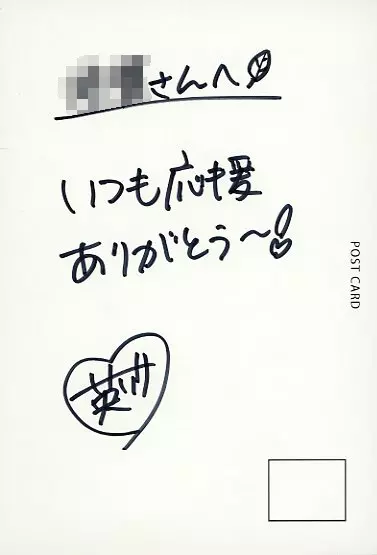 さんへ
いつも応援
ありがとう〜!
POST CARD